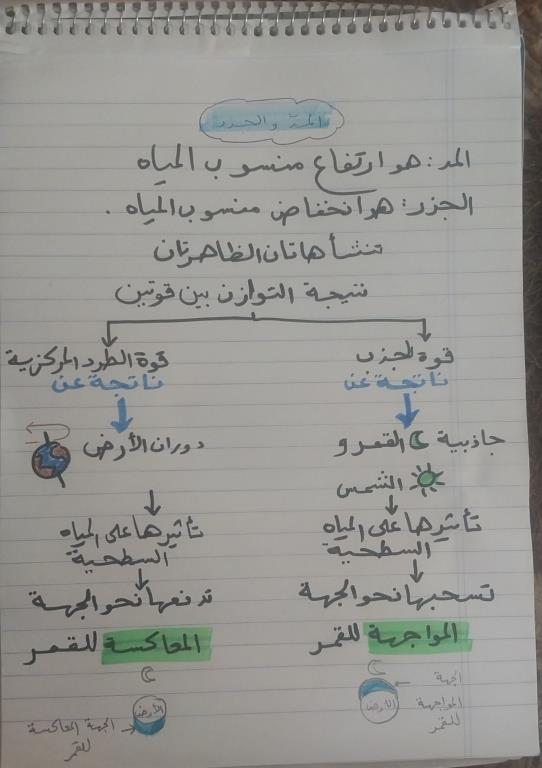 المدّ و الجزر
المد: هو ارتفاع منسوب المياه
الجزر: هو انخفاض منسوب المياه .
تنشأ هاتان الظاهرتان
نتيجة التوازن بين قوتين
قوة الجذب
ناتجة عن
جاذبية القمر و
الشمس
تأثيرها على المياه
السطحية
تسحبها نحو الجهة
المواجهة للقمر
الجهة
المواجهة
للقمر
الأرض
قوة الطرد المركزية
ناتجة عن
دوران الأرض
تأثيرها على المياه
السطحية
تدفعها نحو الجهة
المعاكسة للقمر
الأرض
الجهة المعاكسة
للقمر